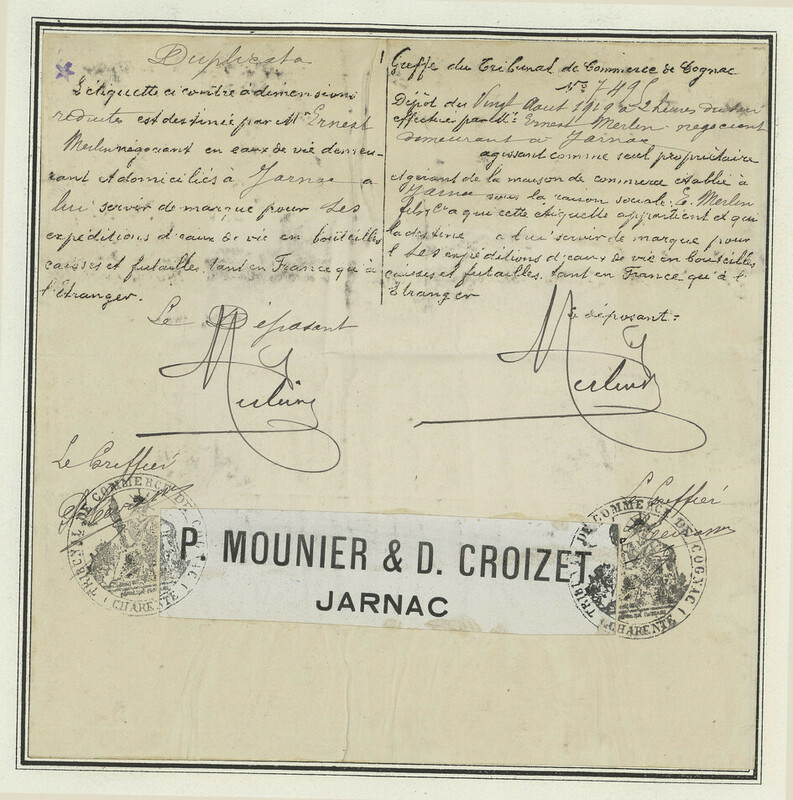 Duplicata
L'étiquette ci contre à dimensions
réduites est destinée par Mr Ernest
Merlin négociant en eaux de vie demeu-
rant et domiciliés à Jarnac a
lui servir de marque pour ses
expéditions d'eaux de vie en bouteilles
caisses et futailles tant en France qu'à
l'étranger.
Le Déposant
Merlin
Le Greffier
Greffe du Tribunal de Commerce de Cognac
No 749
Dépôt du Vingt Aout 1919 à 2 heures du soir
effectué par Mr Ernest Merlin négociant
demeurant à Jarnac
agissant comme seul propriétaire
et gérant de la maison de commerce établie à
Jarnac sous la raison sociale: E. Merlin
fils & Cia qui cette étiquette appartient et qui
la destine a lui servir de marque pour
ses expéditions d'eaux de vie en bouteilles
caisses et futailles tant en France qu'à l'
étranger
Le déposant:
Merlin
Le Greffier
P. MOUNIER & D. CROIZET
JARNAC
TRIBUNAL DE COMMERCE DE COGNAC
CHARENTE
TRIBUNAL DE COMMERCE DE COGNAC
CHARENTE